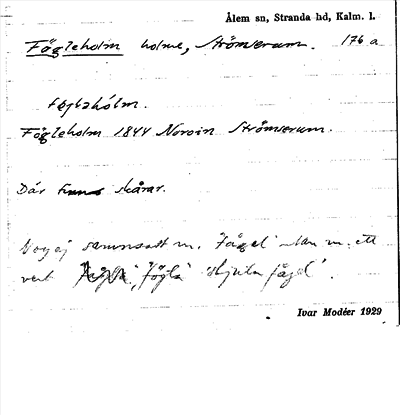 Ålem sn, Stranda hd, Kalm. l.
Fögleholm holme, Strömserum. 176 a
Fögleholm 1844 Noroin Strömserum.
Där finns skårar.
Nog ej sammansatt m. 'fågel' utan m. ett
verb 'fögla' 'skjuta fågel'.
Ivar Modéer 1929